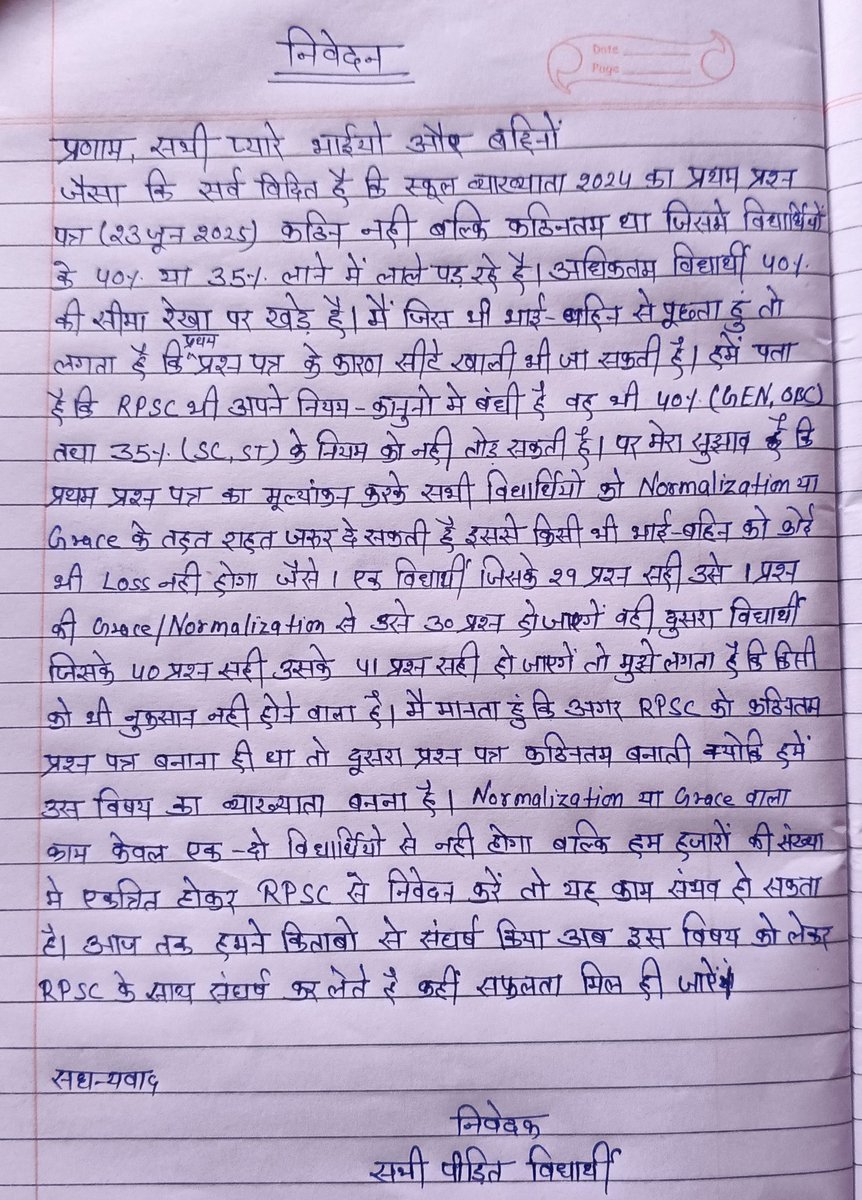 निवेदन
Date
Page
प्रणाम, सभी प्यारे भाईयो और बहिनों
जैसा कि सर्व विदित है कि स्कूल व्याख्याता 2024 का प्रथम प्रश्न
पत्र (23 जून 2025) कठिन नही बल्कि कठिनतम था जिसमे विद्यार्थियों
के 40% या 35% लाने में लाले पड़ रहे है। अधिकतम विद्यार्थी 40%
की सीमा रेखा पर खड़े है। मैं जिस भी भाई-बहिन से पूछता हुं तो
लगता है कि प्रथम प्रश्न पत्र के कारण सीटे खाली भी जा सकती है। हमें पता
है कि RPSC भी अपने नियम-कानुनो मे बंधी है वह भी 40% (GEN, OBC)
तथा 35% (SC, ST) के नियम को नही तोड़ सकती है। पर मेरा सुझाव है कि
प्रथम प्रश्न पत्र का मूल्यांकन करके सभी विद्यार्थियो को Normalization या
Grace के तहत राहत जरुर दे सकती है इससे किसी भी भाई-बहिन को कोई
भी Loss नही होगा जैसे। एक विद्यार्थी जिसके 29 प्रश्न सही उसे 1 प्रश्न
की Grace/Normalization से उसे 30 प्रश्न हो जाएगें वही दुसरा विद्यार्थी
जिसके 40 प्रश्न सही उसके 41 प्रश्न सही हो जाएगें तो मुझे लगता है कि किसी
को भी नुकसान नही होने वाला है। मै मानता हुं कि अगर RPSC को कठिनतम
प्रश्न पत्र बनाना ही था तो दूसरा प्रश्न पत्र कठिनतम बनाती क्योकि हमें
उस विषय का व्याख्याता बनना है। Normalization या Grace वाला
काम केवल एक-दो विद्यार्थियो से नही होगा बल्कि हम हजारों की संख्या
मे एकत्रित होकर RPSC से निवेदन करें तो यह काम संभव हो सकता
है। आज तक हमने किताबो से संघर्ष किया अब इस विषय को लेकर
RPSC के साथ संघर्ष कर लेते है कहीं सफलता मिल ही जाऐं
सधन्यवाद
निवेदक
सभी पीड़ित विद्यार्थी